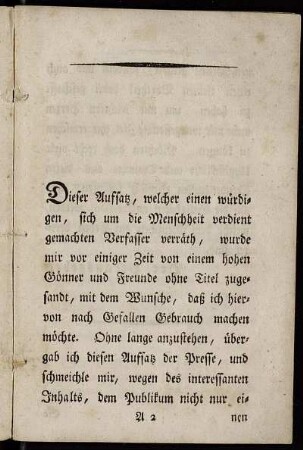 Dieser Aufsatz, welcher einen würdi-
gen, sich um die Menschheit verdient
gemachten Verfasser verräth, wurde
mir vor einiger Zeit von einem hohen
Gönner und Freunde ohne Titel zuge-
sandt, mit dem Wunsche, daß ich hier-
von nach Gefallen Gebrauch machen
möchte. Ohne lange anzustehen, über-
gab ich diesen Aufsatz der Presse, und
schmeichle mir, wegen des interessanten
Inhalts, dem Publikum nicht nur ei-
A 2 nen